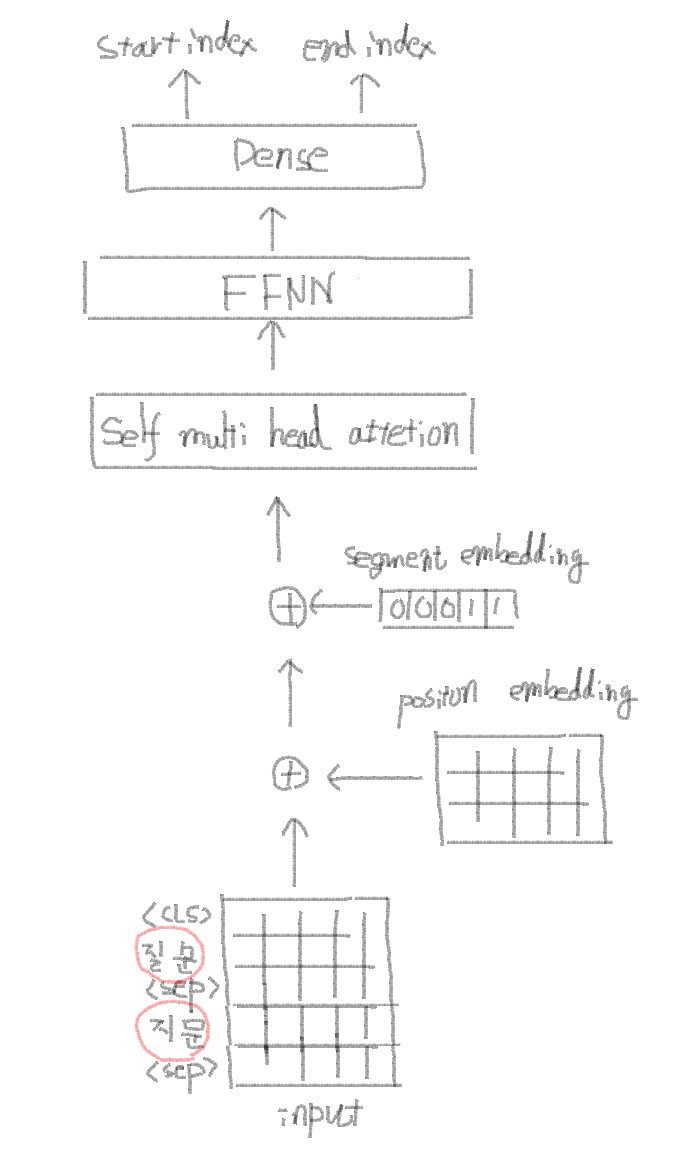 start index end index
Dense
FFNN
Self multi head attetion
segment embedding
0 0 0 1 1
positon embedding
<CLS>
질문
<sep>
지문
<sep>
input